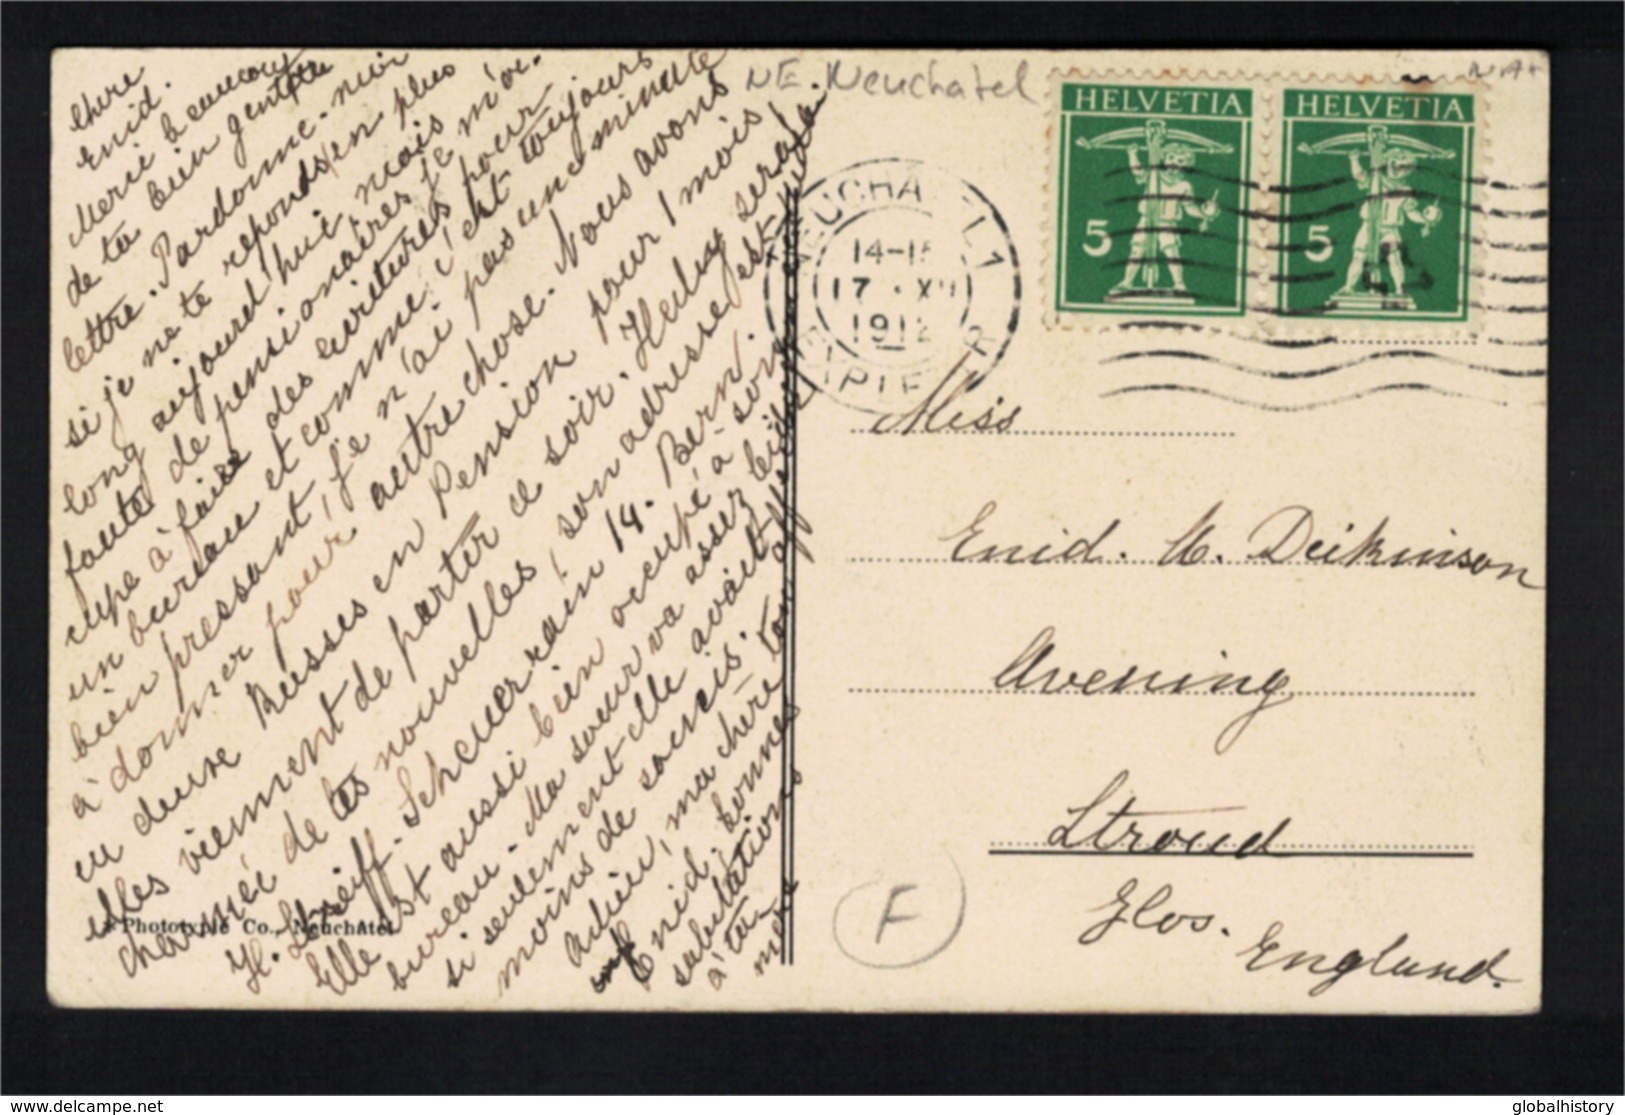 chère
Enid.
Merci beaucoup
de ta bien gentille
lettre. Pardonne-moi
si je ne te réponds en plus
long aujourd'hui, mais
faute de pensionaires je m'oc-
cupe à faire des écritures pour
un bureau et comme c'est toujours
bien pressant, je n'ai pas une minute
à donner pour autre chose. Nous avons
eu deux Russes en Pension pour 1 mois
elles viennent de partir ce soir. Hedwig sera
charmée de tes nouvelles, son adresse est
H. Streiff. Scheuerrain 14. Bern.
Elle est aussi bien occupé à son
bureau. Ma soeur va assez bien
si seulement elle avait
moins de soucis.
Adieu, ma chère
Enid. bonnes
salutations
à ta
mère
ton
Phototypie Co., Neuchâtel
NE. Neuchatel
HELVETIA
5
HELVETIA
5
NEUCHATEL 1
14-15
17 . XII
1912
Miss
Enid. M. Deikinson
Avening
Stroud
Glos.
England.
F
delcampe.net
globalhistory